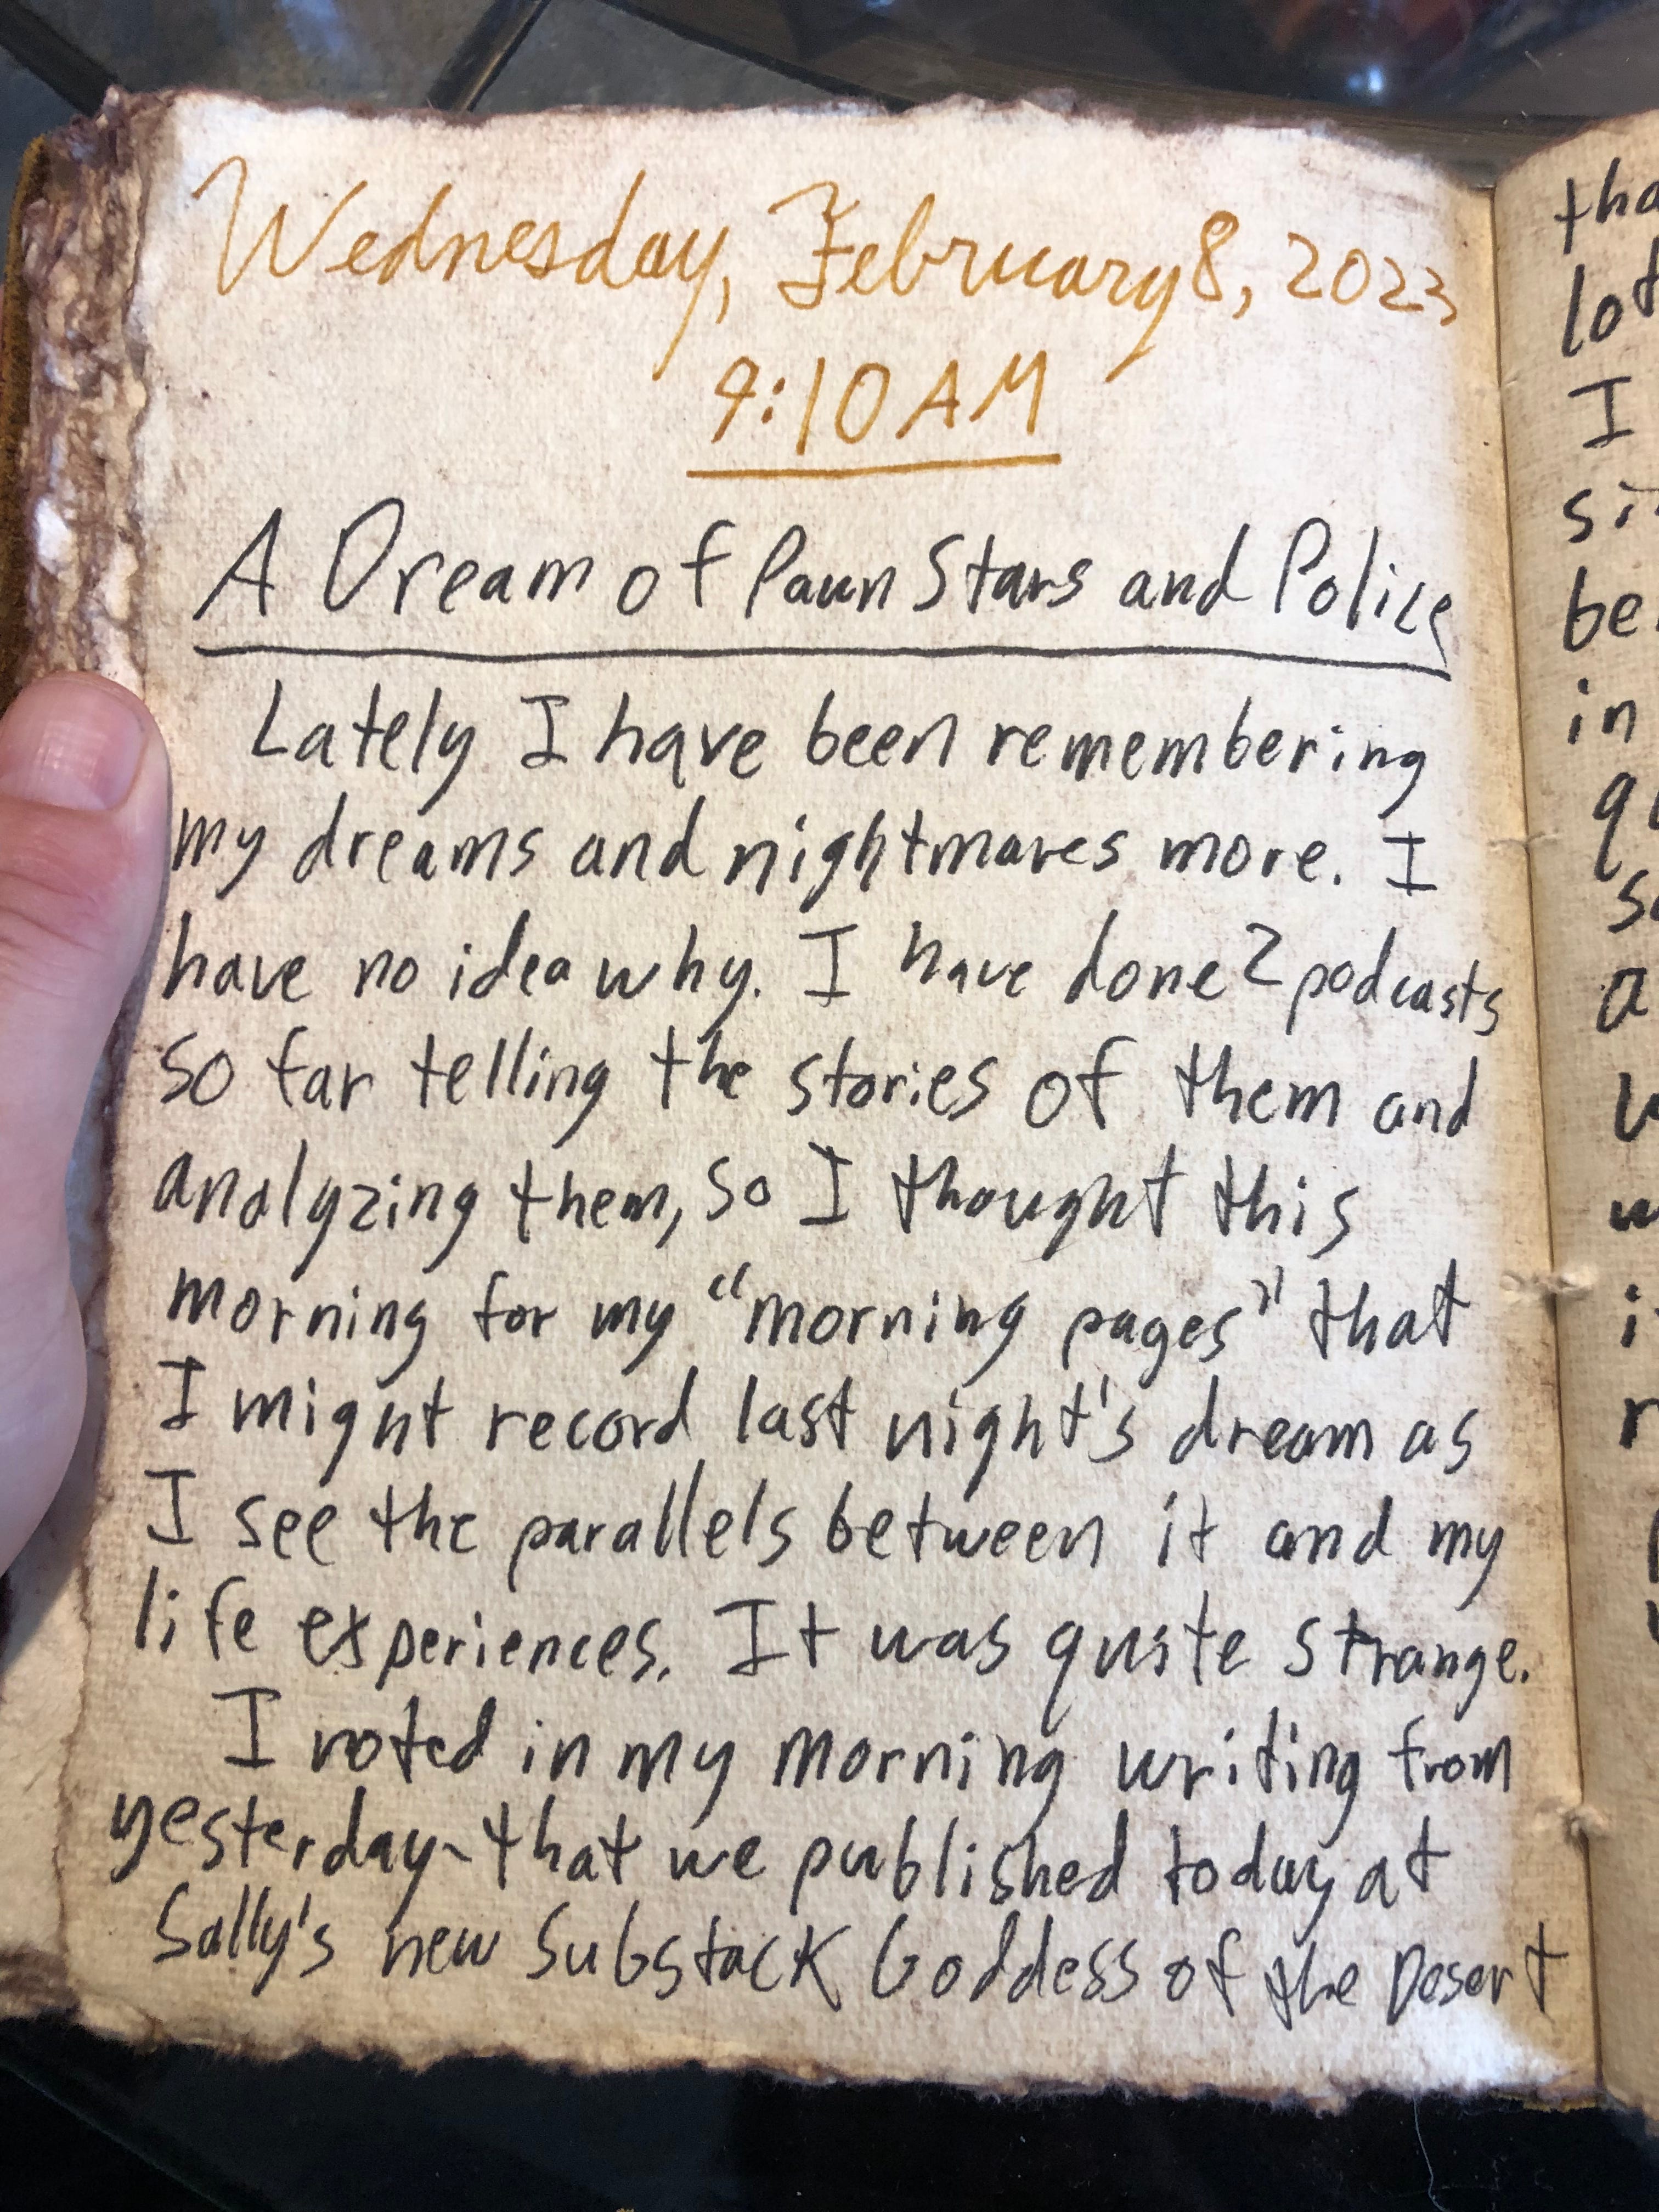 Wednesday, February 8, 2023
9:10 AM
A Dream of Pawn Stars and Police
Lately I have been remembering
my dreams and nightmares more. I
have no idea why. I have done 2 podcasts
so far telling the stories of them and
analyzing them, so I thought this
morning for my "morning pages" that
I might record last night's dream as
I see the parallels between it and my
life experiences. It was quite strange.
I noted in my morning writing from
yesterday - that we published today at
Sally's new Substack Goddess of the Desert
lot
I
in
a